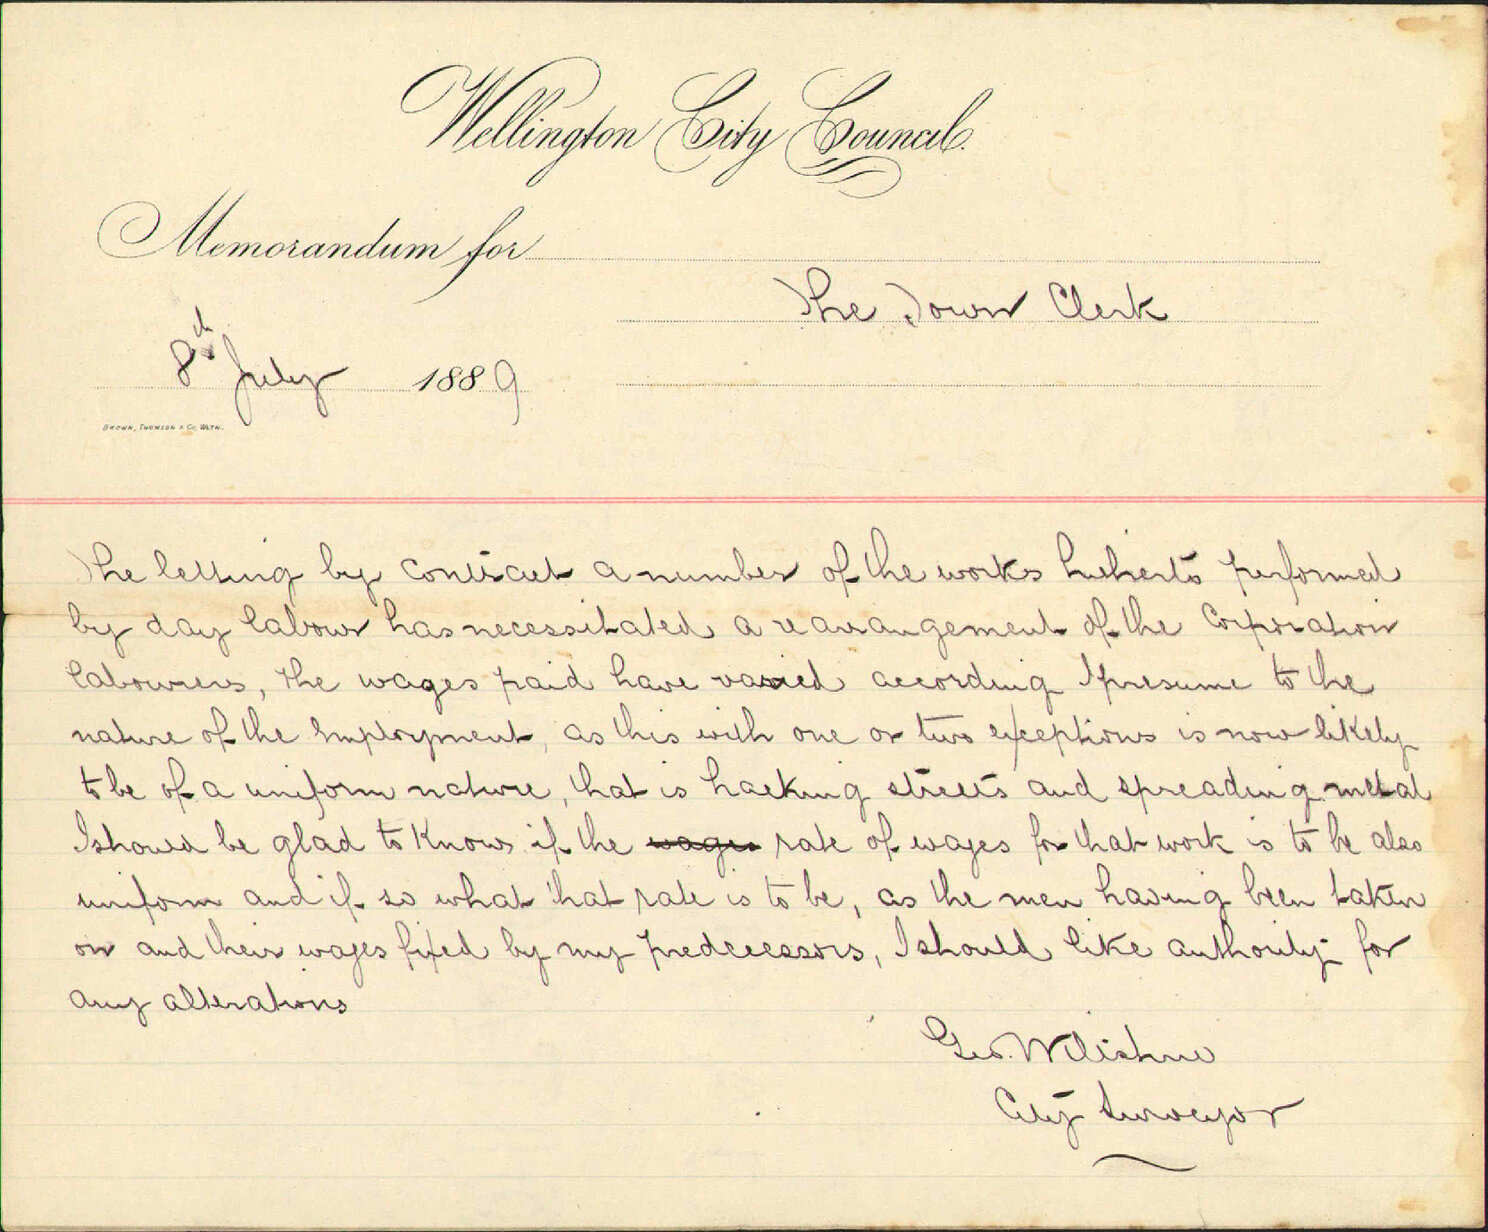 Wellington City Council.
Memorandum for
The Town Clerk
8th July 1889
BROWN, THOMSON & Co, WGTN.
The letting by contract a number of the works hitherto performed
by day labour has necessitated a rearrangement of the Corporation
labourers, the wages paid have varied according I presume to the
nature of the employment, as this with one or two exceptions is now likely
to be of a uniform nature, that is hacking streets and spreading metal
I should be glad to know if the wages rate of wages for that work is to be also
uniform and if so what that rate is to be, as the men having been taken
on and their wages fixed by my predecessors, I should like authority for
any alterations
Geo. Wiltshire
City Surveyor